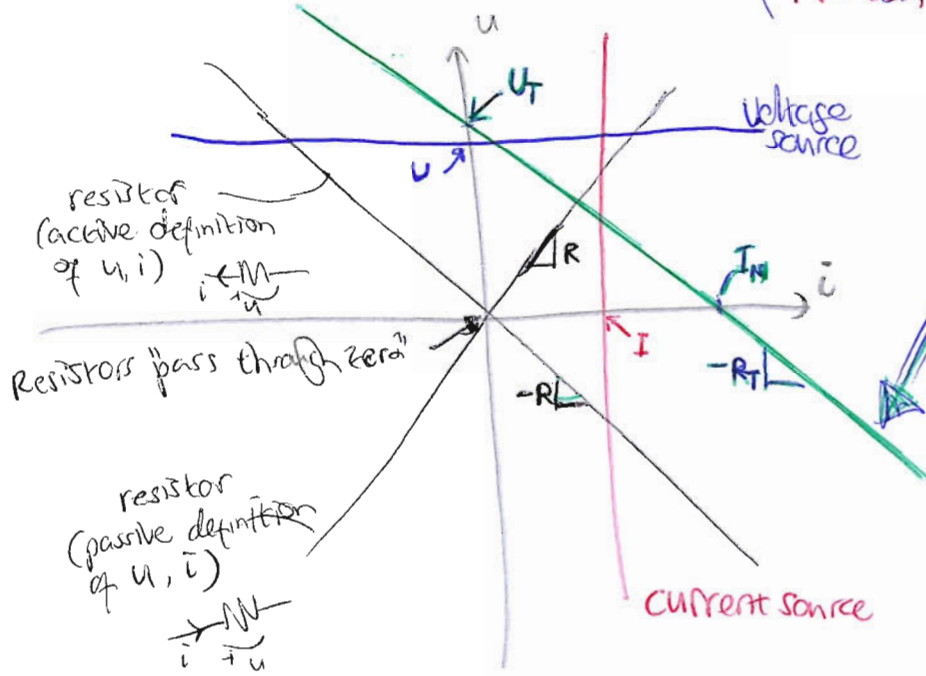 u
U_T
voltage
source
U
resistor
(active definition
of u, i)
i
+ u
R
I_N
i
I
Resistors "pass through zero"
-R_T
-R
resistor
(passive definition
of u, i)
i
+ u
current source